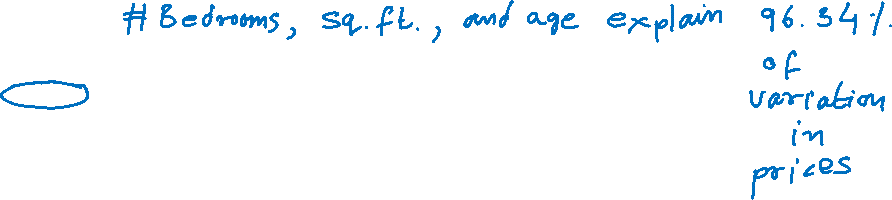 # Bedrooms, sq.ft., and age explain 96.34%
of
variation
in
prices